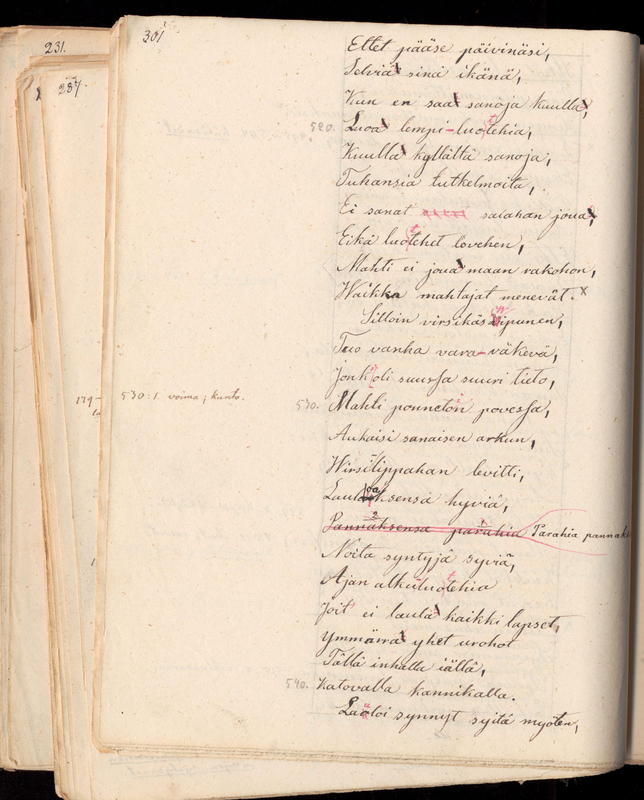 231.
237.
301
Ellet pääse päivinäsi,
Selviä sinä ikänä,
Kun en saa sanoja kuulla,
520. Luoa lempi-luotehia,
Kuulla kyllältä sanoja,
Tuhansia tutkelmoita,
Ei sanat salahan joua,
Eikä luotehet lovehen,
Mahti ei joua maan rakohon,
Waikka mahtajat menevät. x
Silloin virsikäs Wipunen,
Tuo vanha vara-väkevä,
Jonk' oli suussa suuri tieto,
530:1 voima; kunto.
530. Mahti ponnetoin povessa,
Aukaisi sanaisen arkun,
Wirsilippahan levitti,
Laulaaksensa hyviä,
Pannaksensa parahia Parahia pannak
Noita syntyjä syviä,
Ajan alkuluotehia
Joit' ei laula kaikki lapset,
Ymmärrä yhet urohot
Tällä inhalla iällä,
540. Katovalla kannikalla.
Lauloi synnyt syitä myöten,